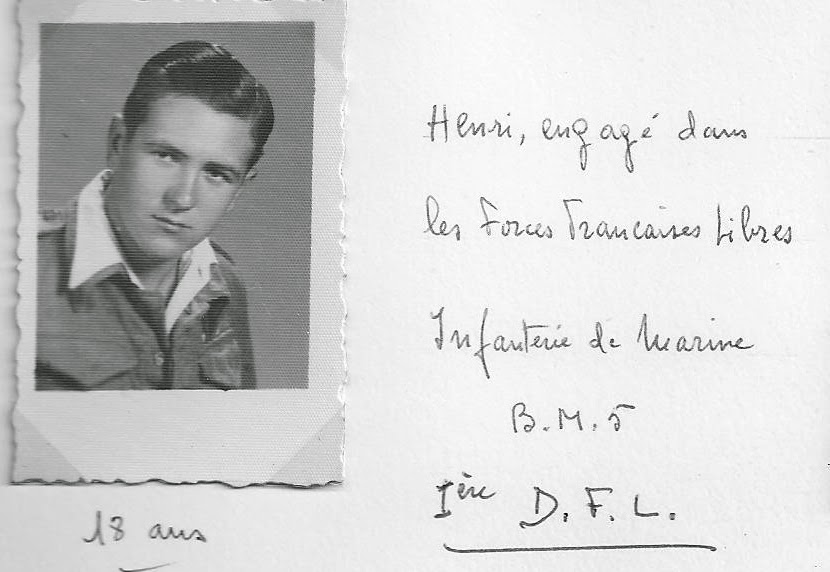 Henri, engagé dans
les Forces Francaises Libres
Infanterie de Marine
B.M.5
Ière D.F.L.
18 ans